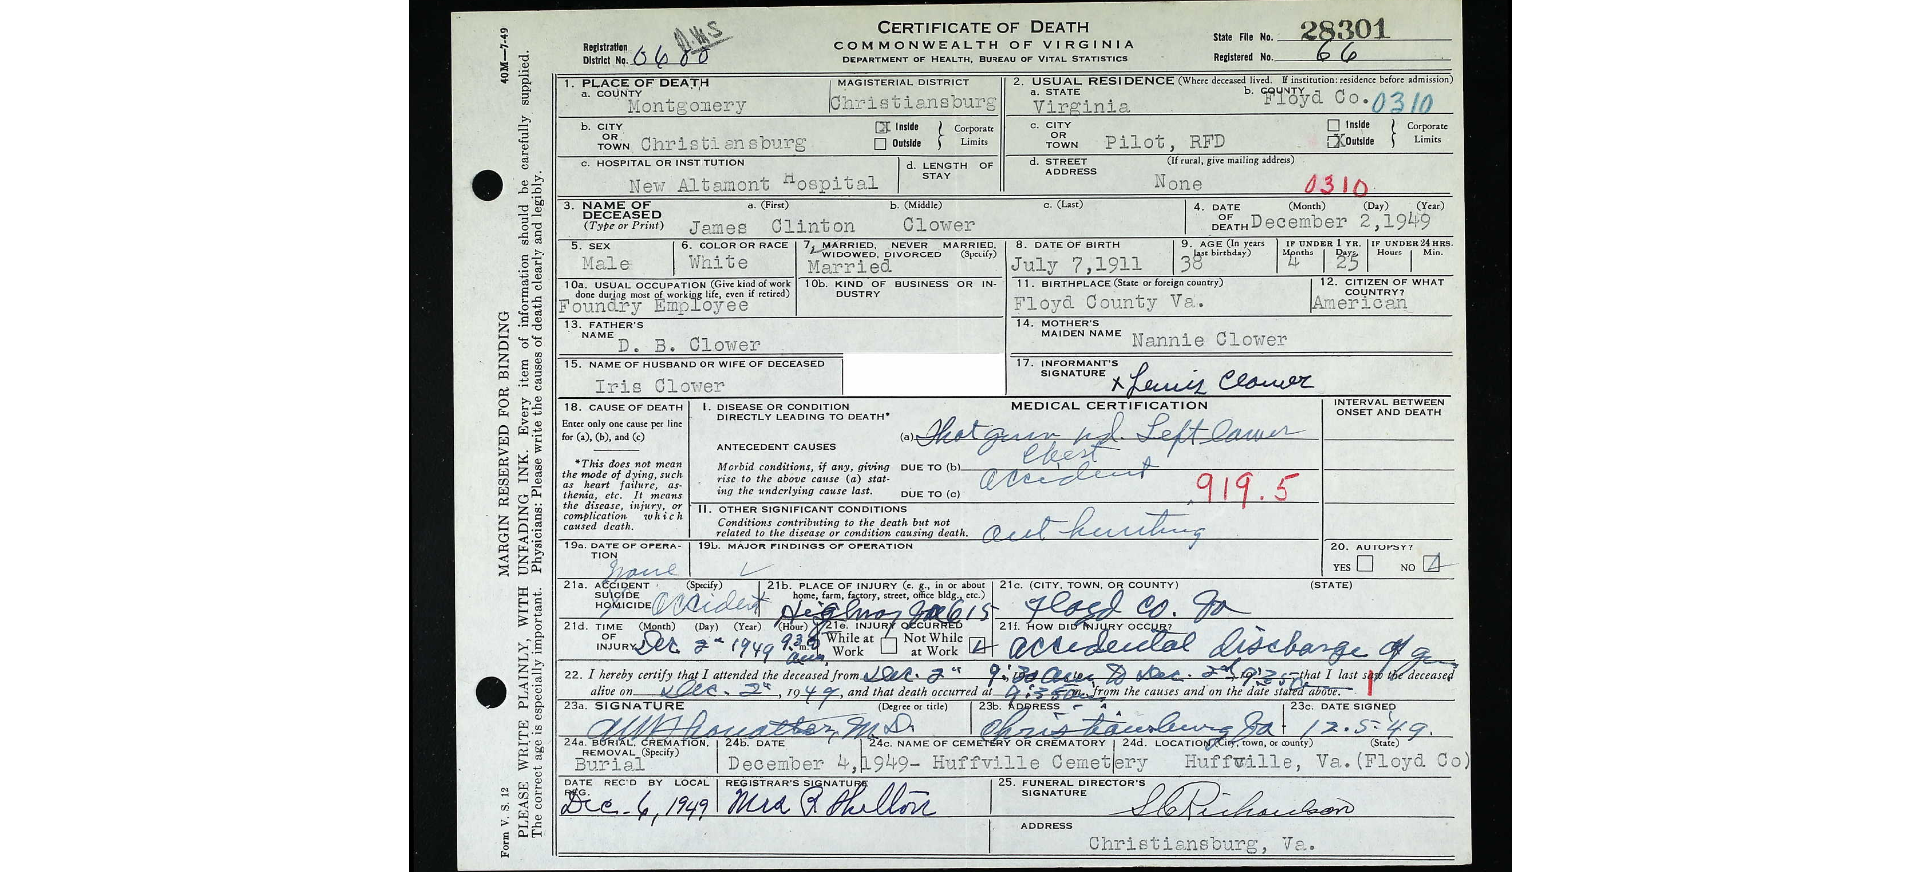 40M—7-49
MARGIN RESERVED FOR BINDING
PLEASE WRITE PLAINLY, WITH UNFADING INK. Every item of information should be carefully supplied.
The correct age is especially important. Physicians: Please write the causes of death clearly and legibly.
Form V. S. 12
CERTIFICATE OF DEATH
COMMONWEALTH OF VIRGINIA
DEPARTMENT OF HEALTH, BUREAU OF VITAL STATISTICS
Registration District No.
State File No. 28301
Registered No. 66
1. PLACE OF DEATH
a. COUNTY Montgomery
MAGISTERIAL DISTRICT Christiansburg
2. USUAL RESIDENCE (Where deceased lived. If institution: residence before admission)
a. STATE Virginia
b. COUNTY Floyd Co. 0310
b. CITY OR TOWN Christiansburg
X Inside Outside Corporate Limits
c. CITY OR TOWN Pilot, RFD
Inside X Outside Corporate Limits
c. HOSPITAL OR INSTITUTION New Altamont Hospital
d. LENGTH OF STAY
d. STREET ADDRESS (If rural, give mailing address) None 0310
3. NAME OF DECEASED (Type or Print)
a. (First) b. (Middle) c. (Last)
James Clinton Clower
4. DATE OF DEATH (Month) (Day) (Year) December 2,1949
5. SEX Male
6. COLOR OR RACE White
7. MARRIED, NEVER MARRIED, WIDOWED, DIVORCED (Specify) Married
8. DATE OF BIRTH July 7,1911
9. AGE (In years last birthday) 38
IF UNDER 1 YR. Months 4 Days 25
IF UNDER 24 HRS. Hours Min.
10a. USUAL OCCUPATION (Give kind of work done during most of working life, even if retired) Foundry Employee
10b. KIND OF BUSINESS OR INDUSTRY
11. BIRTHPLACE (State or foreign country) Floyd County Va.
12. CITIZEN OF WHAT COUNTRY? American
13. FATHER'S NAME D. B. Clower
14. MOTHER'S MAIDEN NAME Nannie Clower
15. NAME OF HUSBAND OR WIFE OF DECEASED Iris Clower
17. INFORMANT'S SIGNATURE x Lewis Clower
18. CAUSE OF DEATH
Enter only one cause per line for (a), (b), and (c)
*This does not mean the mode of dying, such as heart failure, asthenia, etc. It means the disease, injury, or complication which caused death.
MEDICAL CERTIFICATION
INTERVAL BETWEEN ONSET AND DEATH
I. DISEASE OR CONDITION DIRECTLY LEADING TO DEATH*
(a) Shot gun wd. Left lower Chest
ANTECEDENT CAUSES
Morbid conditions, if any, giving rise to the above cause (a) stating the underlying cause last.
DUE TO (b) accident
DUE TO (c) 919.5
II. OTHER SIGNIFICANT CONDITIONS
Conditions contributing to the death but not related to the disease or condition causing death. out hunting
19a. DATE OF OPERATION None
19b. MAJOR FINDINGS OF OPERATION
20. AUTOPSY? YES NO
21a. ACCIDENT SUICIDE HOMICIDE (Specify) accident
21b. PLACE OF INJURY (e. g., in or about home, farm, factory, street, office bldg., etc.) Highway 615
21c. (CITY, TOWN, OR COUNTY) (STATE) Floyd Co. Va
21d. TIME OF INJURY (Month) (Day) (Year) (Hour) Dec 2" 1949 9:30 am
21e. INJURY OCCURRED While at Work Not While at Work
21f. HOW DID INJURY OCCUR? accidental discharge of gun
22. I hereby certify that I attended the deceased from Dec. 2" 9:30 am to Dec. 2nd, that I last saw the deceased
alive on Dec. 2", 1949, and that death occurred at 9:35 am, from the causes and on the date stated above.
23a. SIGNATURE (Degree or title) M.D.
23b. ADDRESS Christiansburg Va
23c. DATE SIGNED 12-5-49.
24a. BURIAL, CREMATION, REMOVAL (Specify) Burial
24b. DATE December 4,1949-
24c. NAME OF CEMETERY OR CREMATORY Huffville Cemetery
24d. LOCATION (City, town, or county) (State) Huffville, Va.(Floyd Co)
DATE REC'D BY LOCAL REG. Dec. 6, 1949
REGISTRAR'S SIGNATURE Mrs R. Shelton
25. FUNERAL DIRECTOR'S SIGNATURE Richardson
ADDRESS
Christiansburg, Va.